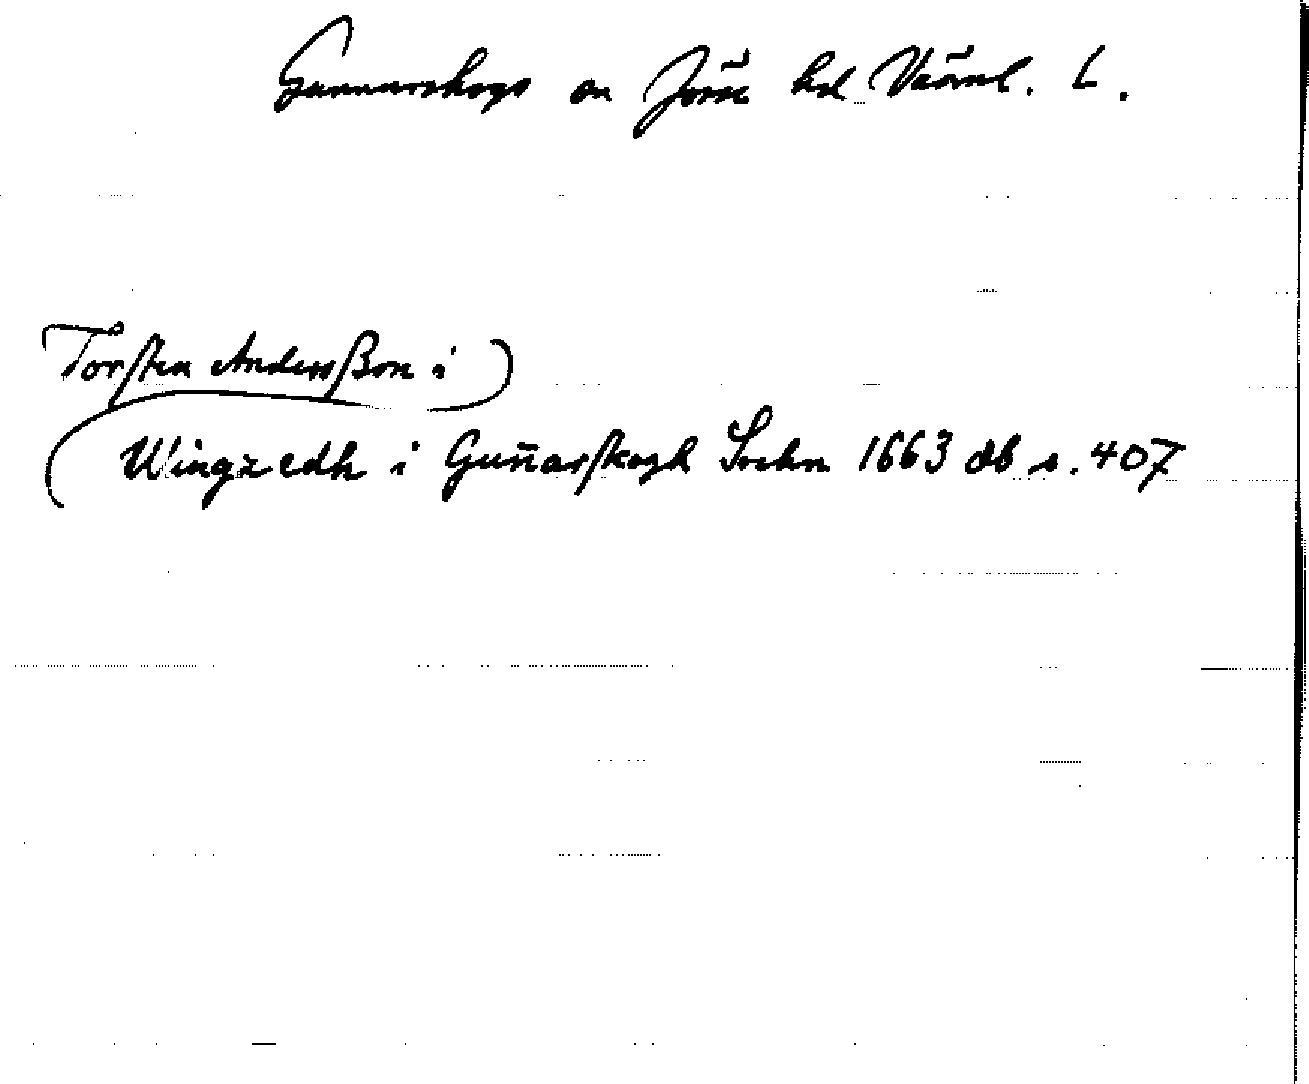 Gunnarskogs sn Jösse hd Värml. L.
(Torsten Andersßon i)
Wingzedh i Gun̄arskogh Sochn 1663 db s. 407